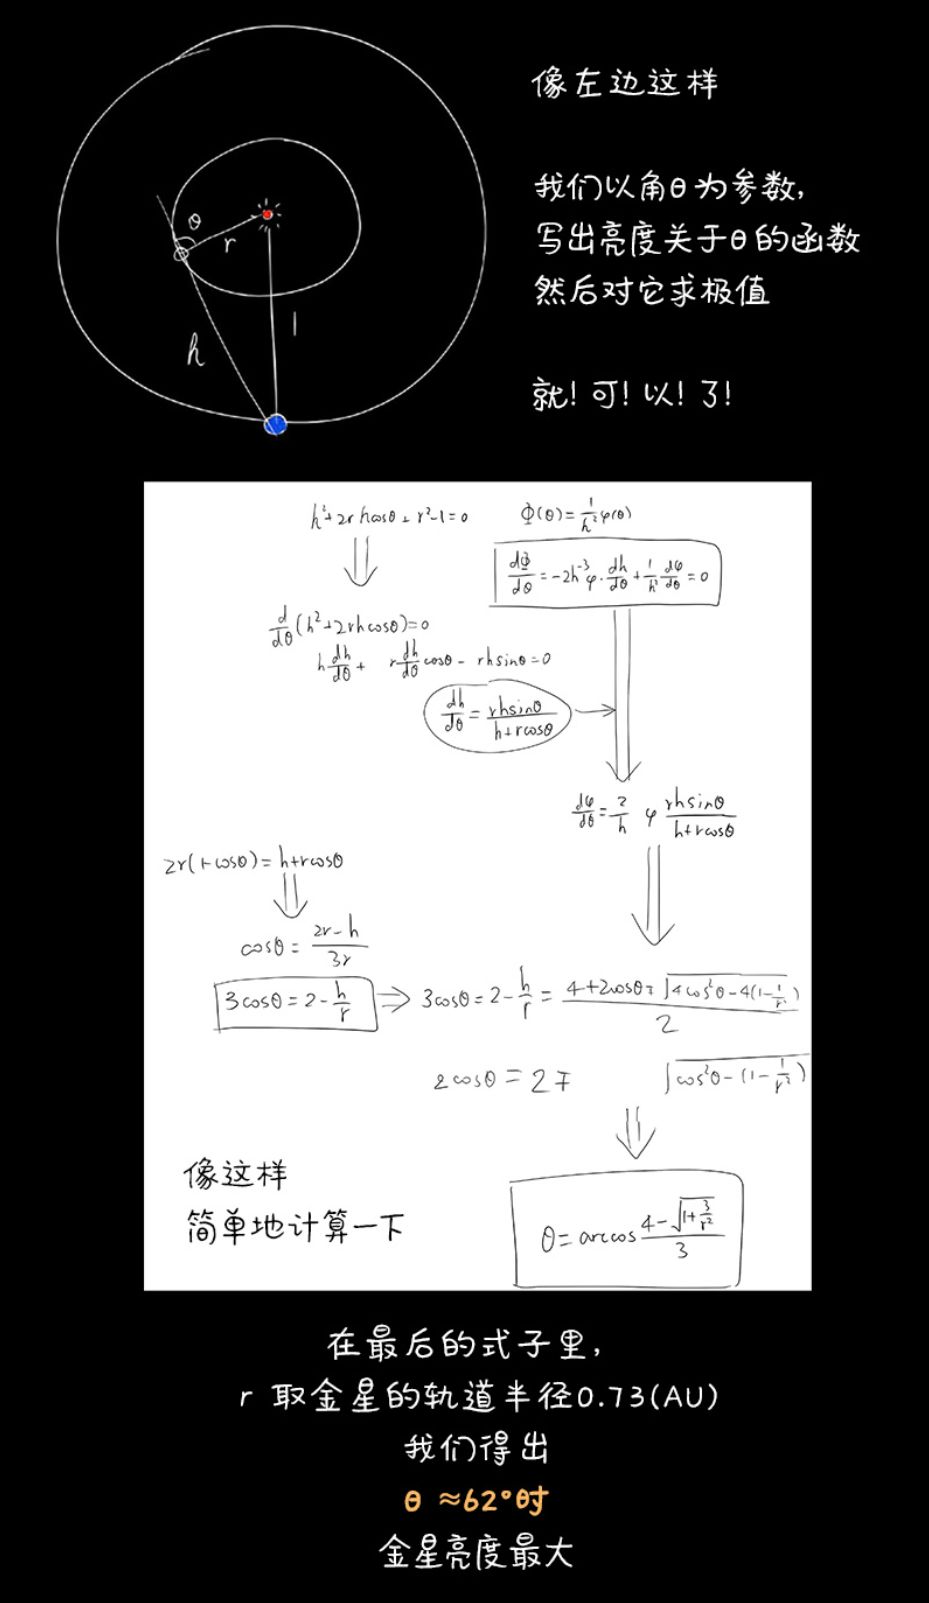 像左边这样
我们以角θ为参数,
写出亮度关于θ的函数
然后对它求极值
就!可!以!了!
θ
r
h
1
h²+2rhcosθ+r²-1=0
Φ(θ)=1/h² φ(θ)
dΦ/dθ=-2h⁻³φ·dh/dθ+1/h² dφ/dθ=0
d/dθ(h²+2rhcosθ)=0
h dh/dθ + r dh/dθ cosθ - rhsinθ=0
dh/dθ=rhsinθ/(h+rcosθ)
dφ/dθ=2/h φ rhsinθ/(h+rcosθ)
2r(1-cosθ)=h+rcosθ
cosθ=(2r-h)/3r
3cosθ=2-h/r
3cosθ=2-h/r=(4+2cosθ∓√(4cos²θ-4(1-1/r²)))/2
2cosθ=2∓√(cos²θ-(1-1/r²))
θ=arccos (4-√(1+3/r²))/3
像这样
简单地计算一下
在最后的式子里,
r 取金星的轨道半径0.73(AU)
我们得出
θ ≈62°时
金星亮度最大